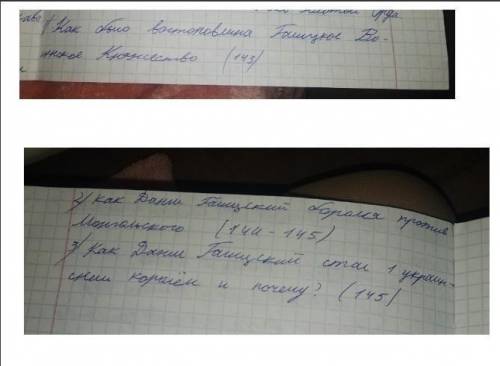 1) Как было востоновлина Галицкое Во-
нское Княжество (143)
2) Как Данил Галицский боролся против
Монгольского (144-145)
3) Как Данил Галицский стал 1 украин-
ским королём и почему? (145)